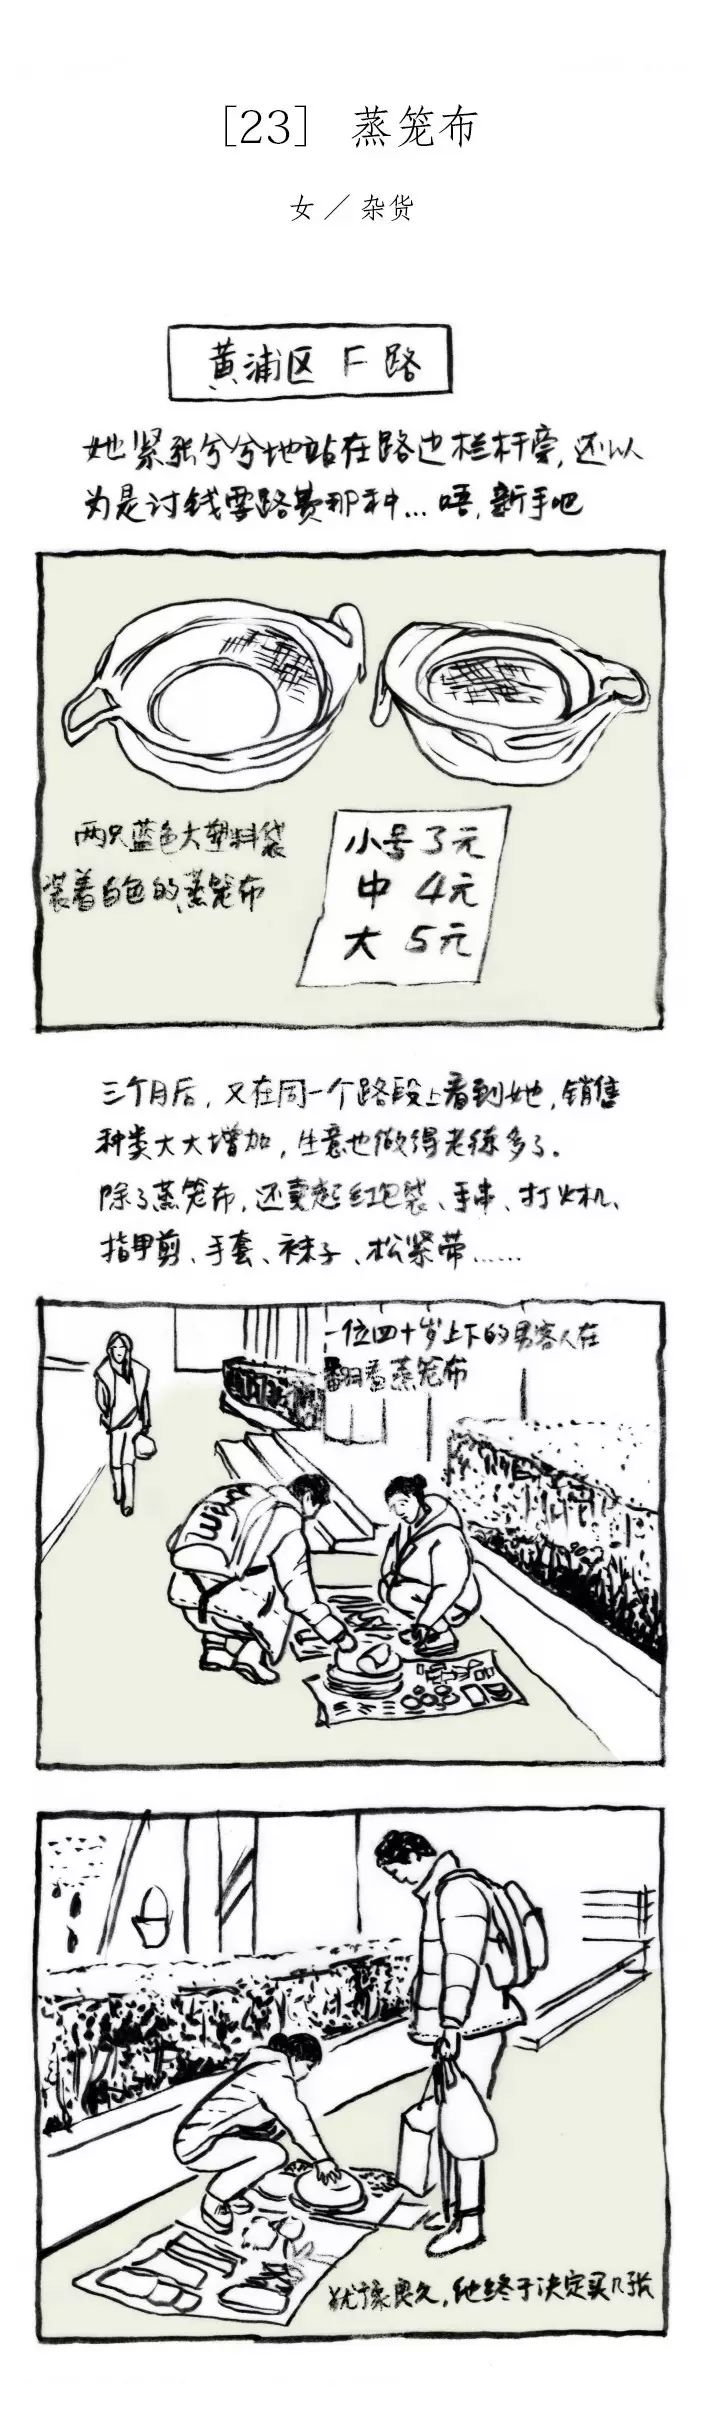 [23] 蒸笼布
女 / 杂货
黄浦区 F 路
她紧张兮兮地站在路边栏杆旁,还以
为是讨钱要路费那种…唔,新手吧
两只蓝色大塑料袋
装着白色的蒸笼布
小号3元
中 4元
大 5元
三个月后,又在同一个路段上看到她,销售
种类大大增加,生意也做得老练多了.
除了蒸笼布,还卖起红包袋、手串、打火机、
指甲剪、手套、袜子、松紧带……
一位四十岁上下的男客人在
翻看蒸笼布
犹豫良久,他终于决定买几张